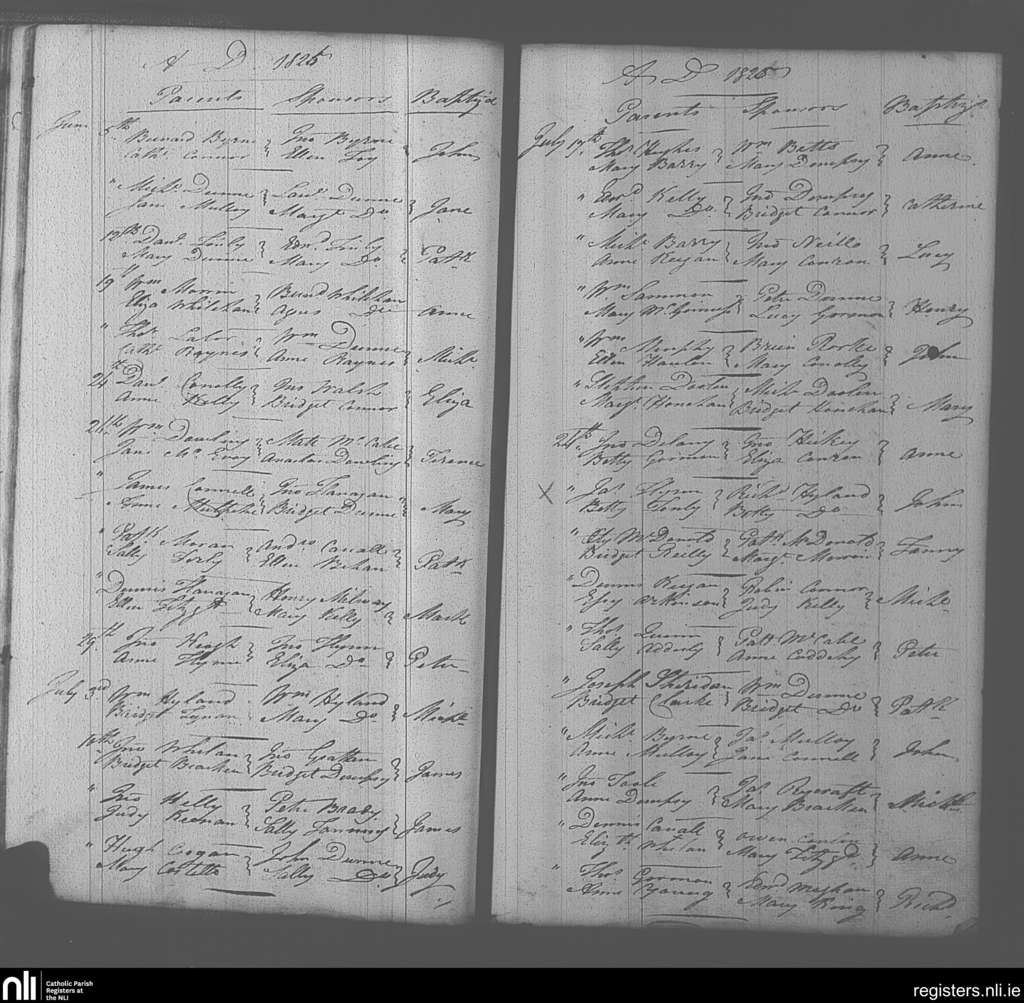 A D 1825
Parents Sponsors Baptiz'd
June 5th Bernard Byrne Jno Byrne
Cathe Connor Ellen Foy John
" Michl Dunne Laur. Dunne
Jane Mulloy Margt Do Jane
12th Danl Edwd
Mary Dunne Mary Do Patk
19 Wm Morrin Bernd Whelehan
Eliza Whelehan Do Anne
" Thos Lalor Wm Dunne
Cathe Raynes Anne Raynes Michl
24th Danl Conolly Jno Walsh
Anne Kelly Bridget Connor Eliza
26th Wm Dowling McCabe
Jane McEvoy Dowling Terence
" James Connell Jno Flanagan
Anne Bridget Dunne Mary
" Patk Moran Andw Cavall
Sally Ellen Patk
" Dennis Flanagan Henry
Ellen Fitzgd Mary Kelly Mark
29th Jno Hough Jno Flynn
Anne Flynn Eliza Do Peter
July 3rd Wm Hyland Wm Hyland
Bridget Lynan Mary Do Michl
10th Jno Whelan Jno
Bridget Bracken Bridget Dempsy James
" Jno Kelly Peter Brady
Judy Keenan Sally James
" Hugh Cogan John Dunne
Mary Costello Sally Do Judy
A D 1825
Parents Sponsors Baptizd
July 17th Thos Hughes Wm Betts
Mary Barry Mary Dempsy Anne
" Edwd Kelly Jno Dempsy
Mary Do Bridget Connor Catherine
" Michl Barry Jno Neille
Anne Keegan Mary Conron Lucy
" Wm Sammon Peter Dunne
Mary Lucy Gorman Henry
" Wm Murphy Brien Rorke
Ellen Hanlon Mary Conolly John
" Stephen Doolin Michl Doolin
Margt Honehan Bridget Honehan Mary
24th Jno Delany Jno Hickey
Betty Gorman Eliza Conron Anne
X " Jas Flynn Richd Hyland
Betty Betty Do John
" McDonold Patk McDonold
Bridget Reilly Margt Morrin Fanny
" Dennis Keegan Robin Connor
Atkinson Judy Kelly Michl
" Thos Quinn Patt McCabe
Sally Adderly Anne Cuddehy Peter
" Joseph Sheridan Wm Dunne
Bridget Clarke Bridget Do Patk
" Michl Byrne Jas Mulloy
Anne Mulloy Jane Connell John
" Jno Toole Jas Reycraft
Anne Dempsy Mary Bracken Michl
" Dennis Cavall Owen
Elizth Whelan Mary Fitzgd Anne
" Thos Gorman Edwd Meehan
Anne Young Mary King Richd
nli
Catholic Parish
Registers at
the NLI
registers.nli.ie